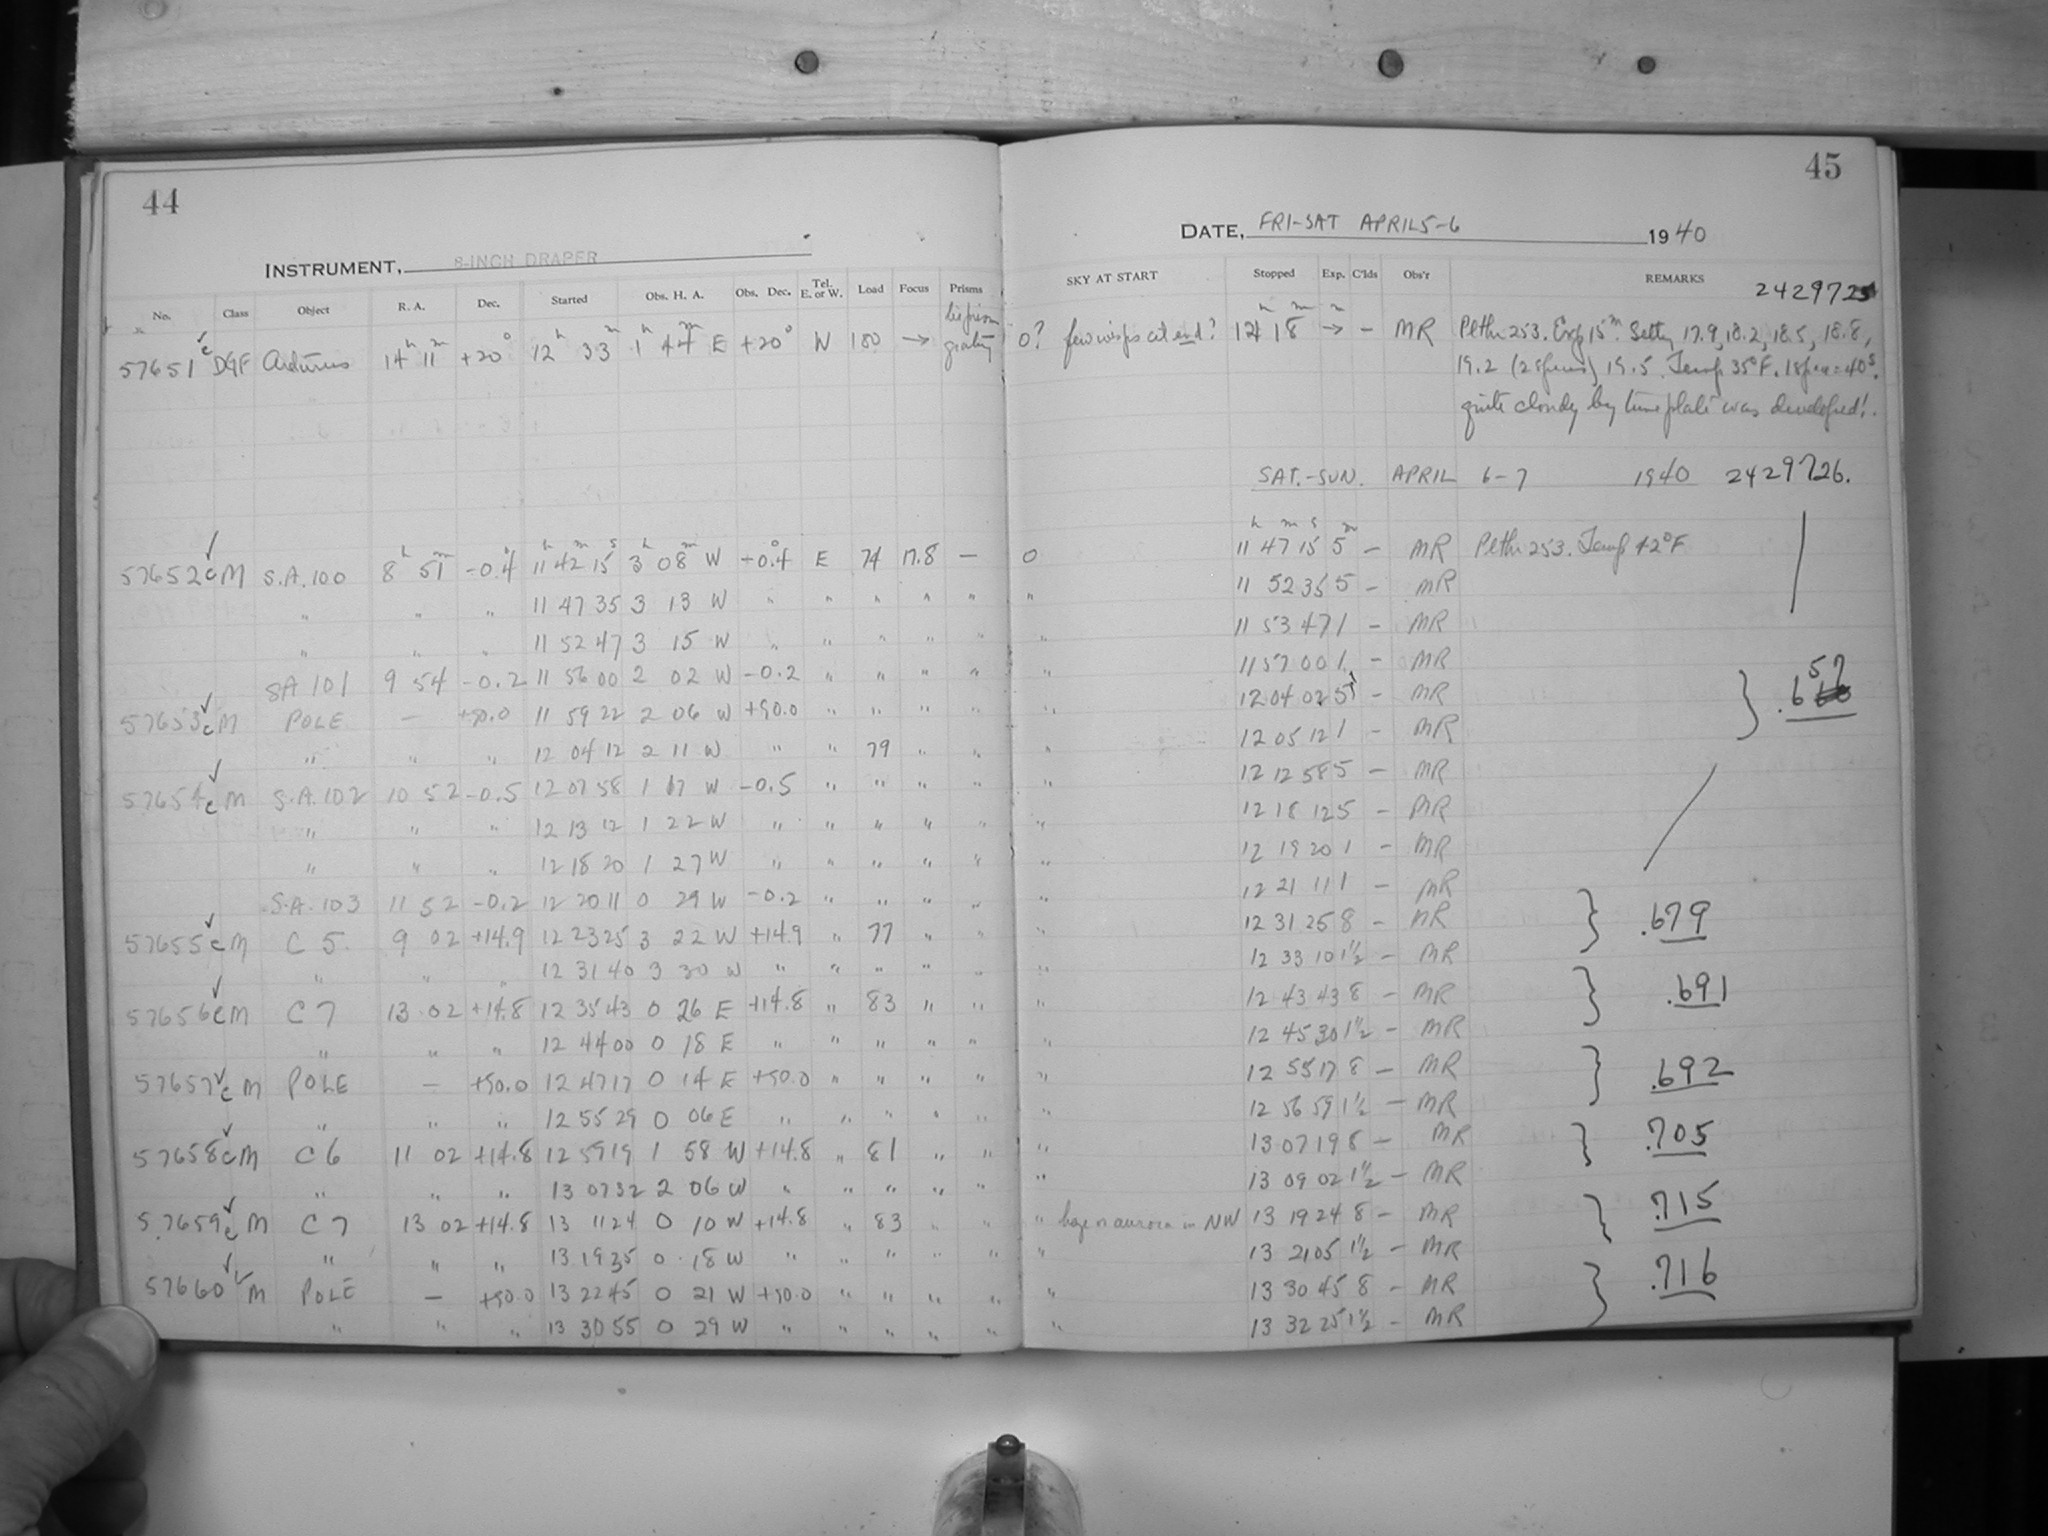 44
INSTRUMENT, 8-INCH DRAPER
No. Class Object R. A. Dec. Started Obs. H. A. Obs. Dec. Tel. E. or W. Load Focus Prisms
57651 c DGF Arcturus 14h 11m +20° 12h 33m 1h 44m E +20° W 180 → grating
57652 c M S.A. 100 8h 51m -0.4 11h 42m 15s 3h 08m W -0.4 E 74 17.8 —
" " " 11 47 35 3 13 W " " " " "
" " " 11 52 47 3 15 W " " " " "
SA 101 9 54 -0.2 11 56 00 2 02 W -0.2 " " " "
57653 c M POLE — +90.0 11 59 22 2 06 W +90.0 " " " "
" " " 12 04 12 2 11 W " " 79 " "
57654 c M S.A. 102 10 52 -0.5 12 07 58 1 17 W -0.5 " " " "
" " " 12 13 12 1 22 W " " " " "
" " " 12 18 20 1 27 W " " " " "
S.A. 103 11 52 -0.2 12 20 11 0 29 W -0.2 " " " "
57655 c M C 5 9 02 +14.9 12 23 25 3 22 W +14.9 " 77 " "
" " " 12 31 40 3 30 W " " " " "
57656 c M C 7 13 02 +14.8 12 35 43 0 26 E +14.8 " 83 " "
" " " 12 44 00 0 18 E " " " " "
57657 c M POLE — +90.0 12 47 17 0 14 E +90.0 " " " "
" " " 12 55 29 0 06 E " " " " "
57658 c M C 6 11 02 +14.8 12 59 19 1 58 W +14.8 " 81 " "
" " " 13 07 32 2 06 W " " " " "
57659 c M C 7 13 02 +14.8 13 11 24 0 10 W +14.8 " 83 " "
" " " 13 19 35 0 18 W " " " " "
57660 c M POLE — +90.0 13 22 45 0 21 W +90.0 " " " "
" " " 13 30 55 0 29 W " " " " "
45
DATE, FRI-SAT APRIL 5-6 1940
SKY AT START Stopped Exp. C'lds Obs'r REMARKS
2429725
0? few wisps at end? 14h 18m → - MR Plthr 253. Exp 15m. Setting 17.9, 18.2, 18.5, 18.8,
19.2 (2 spectra) 19.5. Temp 35°F. 1 spec = 40s.
quite cloudy by time plate was developed!
SAT.-SUN. APRIL 6-7 1940 2429726.
0 11h 47m 15s 5m - MR Plthr 253. Temp 42°F
" 11 52 35 5 - MR
" 11 53 47 1 - MR
" 11 57 00 1 - MR
" 12 04 02 5 - MR .657
" 12 05 12 1 - MR
" 12 12 58 5 - MR
" 12 18 12 5 - MR
" 12 19 20 1 - MR
" 12 21 11 1 - MR
" 12 31 25 8 - MR .679
" 12 33 10 1½ - MR
" 12 43 43 8 - MR .691
" 12 45 30 1½ - MR
" 12 55 17 8 - MR .692
" 12 56 59 1½ - MR
" 13 07 19 8 - MR .705
" 13 09 02 1½ - MR
" haze or aurora in NW 13 19 24 8 - MR .715
" 13 21 05 1½ - MR
" 13 30 45 8 - MR .716
" 13 32 25 1½ - MR